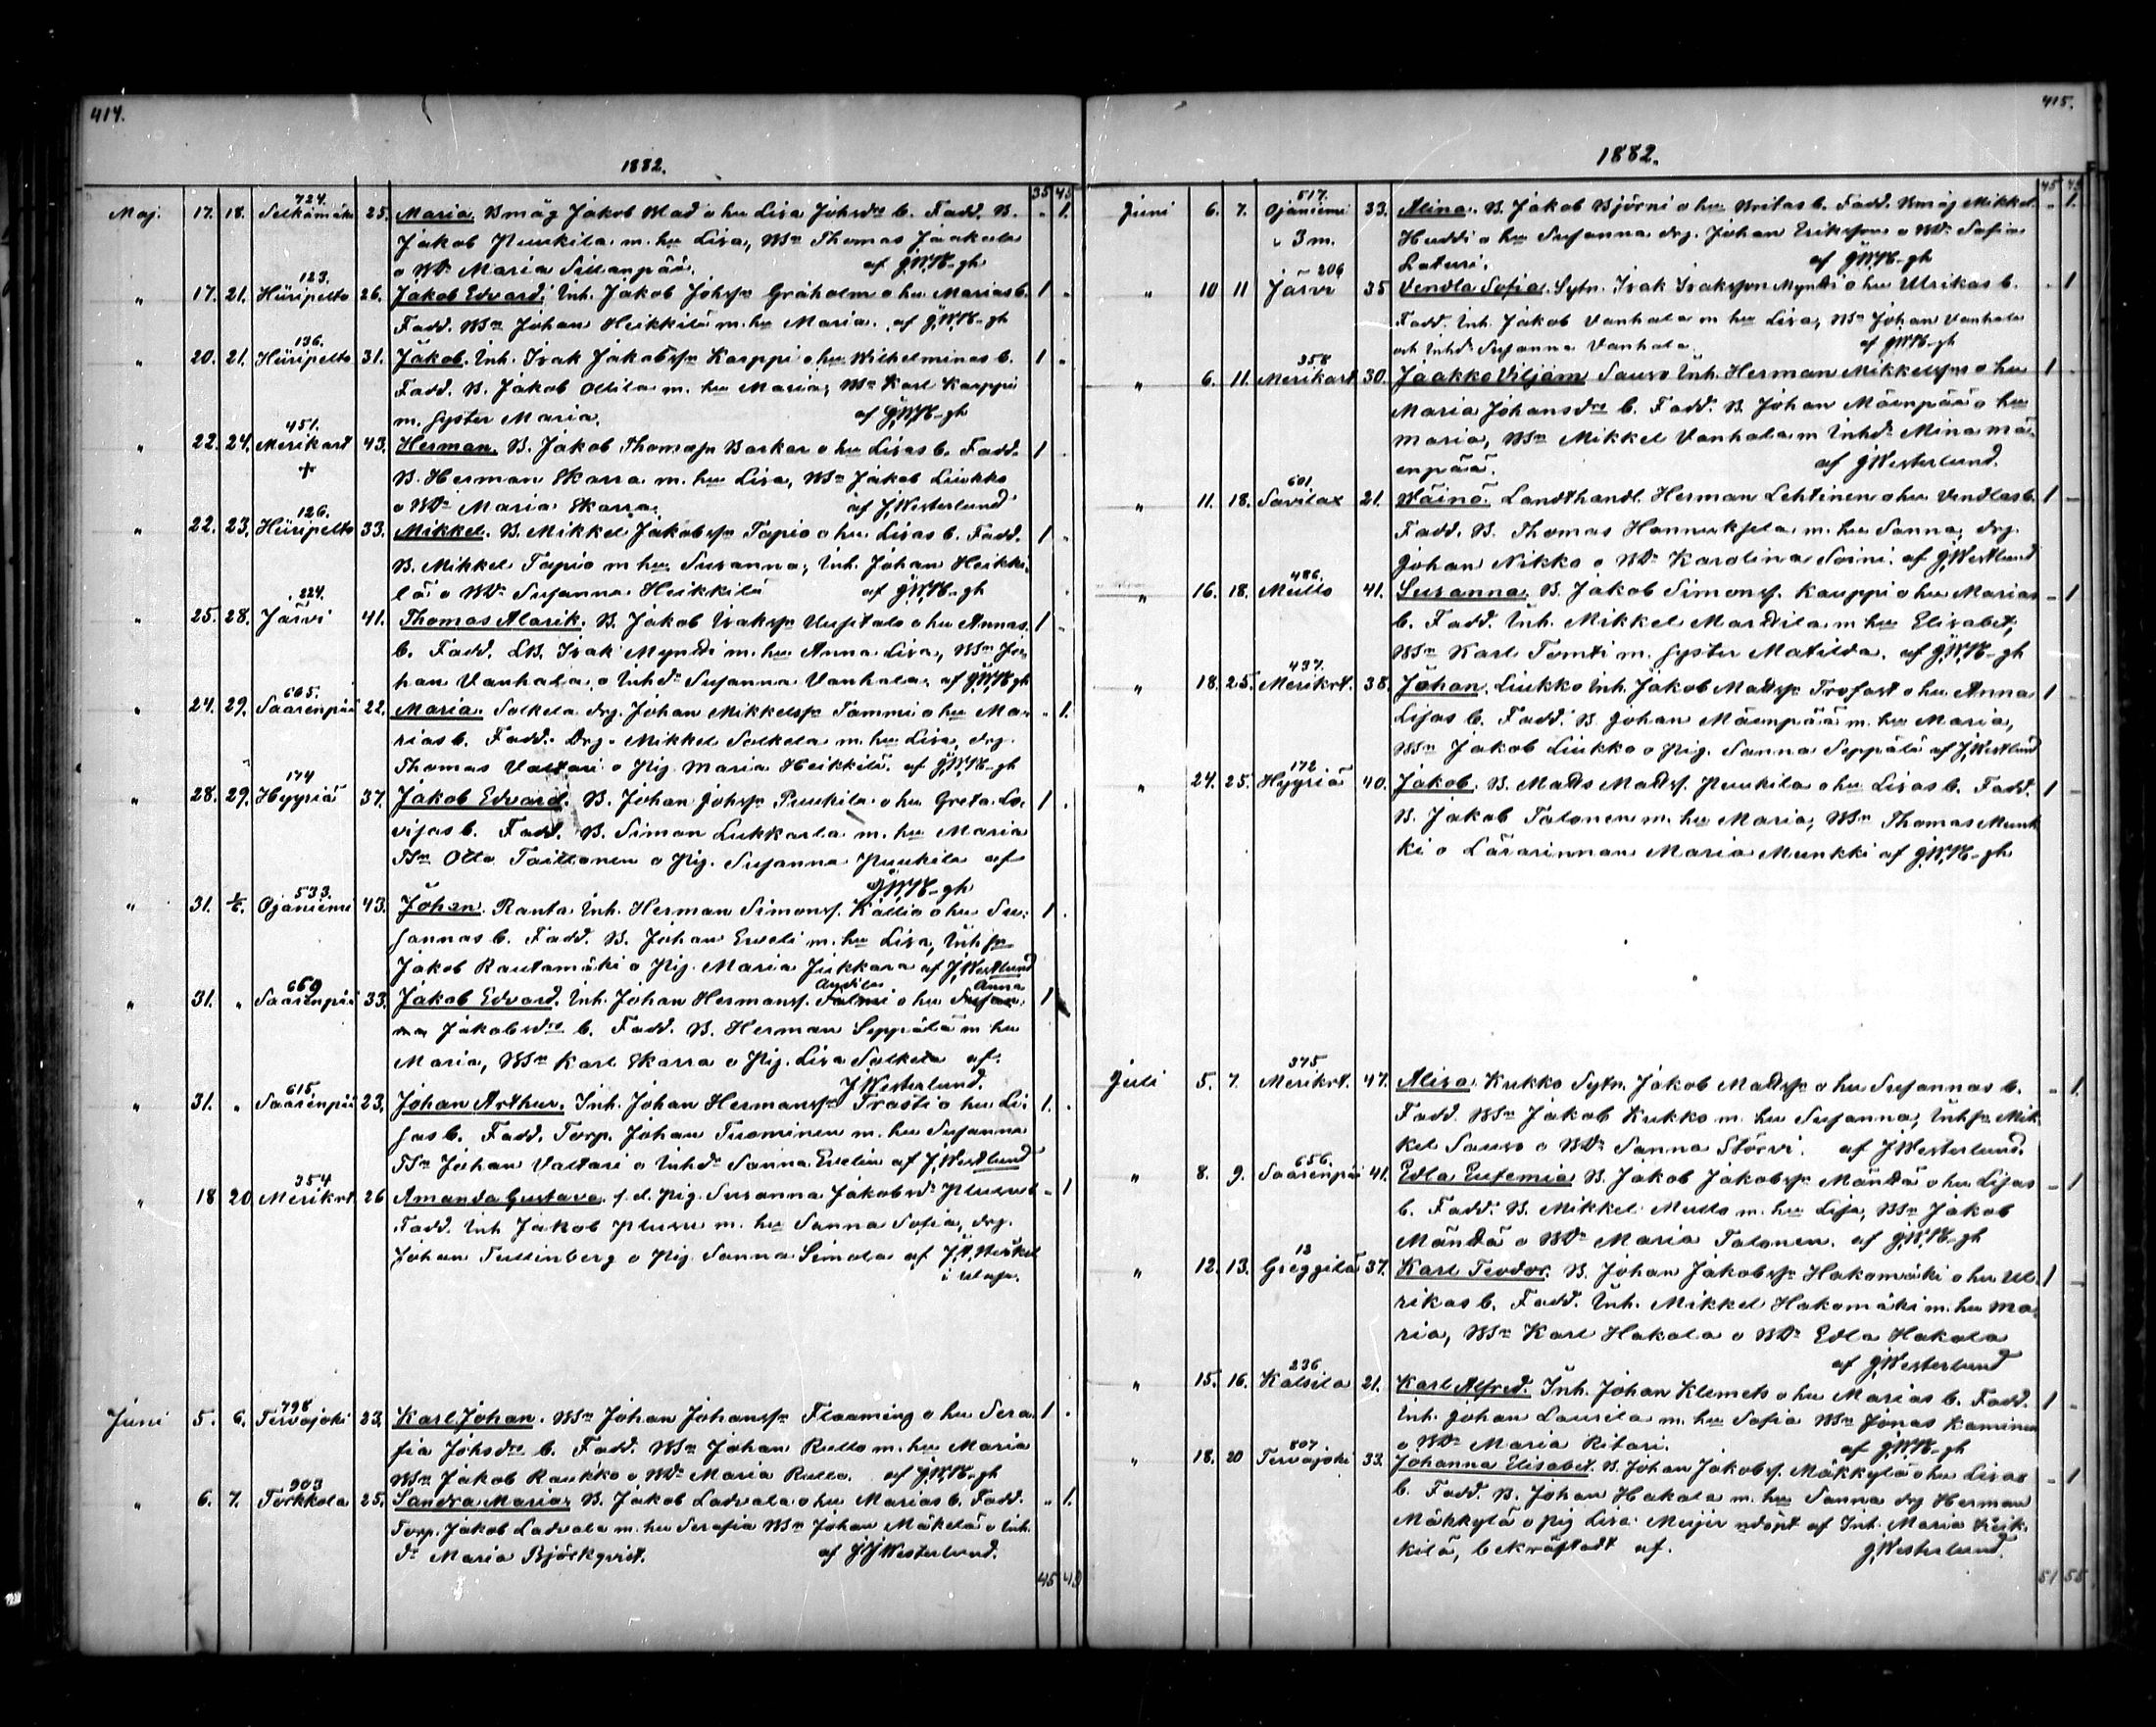 414.
1882.
35 43
724.
Maj. 17. 18. Selkämäki 25. Maria. Bmåg Jakob Mad o hu Lisa Johsdrs b. Fadd. B. " 1.
Jakob Puukila m. hu Lisa, Wsn Thomas Jaakola
o WDr Maria Sillanpää. af J.W.W-gh
123.
" 17. 21. Hiiripelto 26. Jakob Edvard. Inh. Jakob Johsson Gråholm o hu Marias b. 1 "
Fadd. Wsn Johan Heikkilä m. hu Maria. af J.W.W-gh
136.
" 20. 21. Hiiripelto 31. Jakob. Inh. Isak Jakobsson Karppi o hu Wilhelminas b. 1 "
Fadd. B. Jakob Ollila m. hu Maria, Wsn Karl Karppi
m. Syster Maria. af J.W.W-gh
451.
" 22. 24. Merikart 43. Herman. B. Jakob Thomasson Barkar o hu Lisas b. Fadd. 1 .
+ B. Herman Skarra m. hu Lisa, Wsn Jakob Liukko
o WDr Maria Skarra. af J.Westerlund
126.
" 22. 23. Hiiripelto 33. Mikkel. B. Mikkel Jakobsson Tapio o hu Lisas b. Fadd. 1 "
B. Mikkel Tapio m hu Susanna, Inh. Johan Heikki-
lä o WDr Susanna Heikkilä af J.W.W-gh
224.
" 25. 28. Järvi 41. Thomas Alarik. B. Jakob Isaksson Uusitalo o hu Annas 1 "
b. Fadd. LB. Isak Myntti m. hu Anna Lisa, Wsn Jo-
han Vanhala o Inhdr Susanna Vanhala. af J.W.W-gh
665.
" 24. 29. Saarenpää 22. Maria. Salkela drg. Johan Mikkelsson Tammi o hu Ma- " 1.
rias b. Fadd. Drg. Mikkel Salkela m. hu Lisa, drg.
Thomas Valtari o Pig. Maria Heikkilä. af J.W.W-gh
174
" 28. 29. Hyyriä 37. Jakob Edvard. B. Johan Johsson Puukila o hu Greta Lo- 1 .
visas b. Fadd. B. Simon Lukkarla m. hu Maria
Wsn Otto Taittonen o Pig. Susanna Puukila af
J.W.W-gh
533.
" 31. 1/6. Ojaniemi 43. Johan. Ranta Inh. Herman Simonss. Kallio o hu Su- 1 .
sannas b. Fadd. B. Johan Eveli m. hu Lisa, Inhsn
Jakob Rautamäki o Pig. Maria Jukkara af J.Westlund
669 Anna
" 31. " Saarenpää 33. Jakob Edvard. Inh. Johan Hermanss. Salmi o hu Susan- 1
na Jakobsdrs b. Fadd. B. Herman Seppälä m hu
Maria, Wsn Karl Skarra o Pig. Lisa Salkela af.
J Westerlund.
615.
" 31. " Saarenpää 23. Johan Arthur. Inh. Johan Hermansson Trasti o hu Li- 1. .
sas b. Fadd. Torp. Johan Tuominen m. hu Susanna
Wsn Johan Valtari o Inhdr Sanna Evelin af J.Westlund
354
" 18 20 Merikrt. 26 Amanda Gustava. f.d. Pig. Susanna Jakobsdr Plusus b " 1
Fadd. Inh Jakob Plusu m. hu Sanna Sofia, drg.
Johan Tullinberg o Pig. Sanna Simola af
798
Juni 5. 6. Tervajoki 23. Karl Johan. Wsn Johan Johansson Flaaming o hu Sera- 1 .
fia Johsdrs b. Fadd. Wsn Johan Rullo m. hu Maria
Wsn Jakob Raukko o WDr Maria Rullo. af J.W.W-gh
903
" 6. 7. Torkkola 25. Sandra Maria. B. Jakob Ladvala o hu Marias b. Fadd. " 1.
Torp. Jakob Ladvala m. hu Serafia Wsn Johan Mäkelä o Inh.
dr Maria Björkqvist. af J J Westerlund.
45 49
415.
1882.
45 49
517.
Juni 6. 7. Ojaniemi 33. Alina. B. Jakob Björni o hu Britas b. Fadd. Bmåg Mikkel " 1.
" 3 m. Huddi o hu Susanna drg. Johan Eriksson o WDr Sofia
Laturi. af J.W.W-gh
206
" 10 11 Järvi 35 Vendla Sofia. Sytn. Isak Isaksson Myntti o hu Ulrikas b. . 1
Fadd. Inh. Jakob Vanhala m hu Lisa, Wsn Johan Vanhala
och Inhdr Susanna Vanhala. af J.W.W-gh
358
" 6. 11. Merikart. 30. Jaakko Viljam Sauso Inh. Herman Mikkelsson o hu 1 .
Maria Johansdrs b. Fadd. B. Johan Mäenpää o hu
Maria, Wsn Mikkel Vanhala m Inhdr Mina mä-
enpää. af J.Westerlund.
601
" 11. 18. Savilax 21. Wäinö. Landthandl. Herman Lehtinen o hu Vendlas b. 1 -
Fadd. B. Thomas Hannuksela m. hu Sanna, drg.
Johan Nikko o WDr Karolina Soini. af J.Westlund
486.
" 16. 18. Mullo 41. Susanna. B. Jakob Simonss. Kauppi o hu Marias - 1
b. Fadd. Inh. Mikkel Marttila m hu Elisabet,
Wsn Karl Tomti m. Syster Matilda. af J.W.W-gh
437.
" 18. 25. Merikrt. 38. Johan. Liukko Inh. Jakob Mattsson Trofast o hu Anna 1 -
Lisas b. Fadd. B Johan Mäenpää m. hu Maria,
Wsn Jakob Liukko o Pig. Sanna Seppälä af J.Westlund
172
" 24. 25. Hyyriä 40. Jakob. B. Matts Mattss. Puukila o hu Lisas b. Fadd. 1 -
B. Jakob Talonen m. hu Maria, Wsn Thomas Munk
ki o Lärarinnan Maria Munkki af J.W.W-gh
375.
Juli 5. 7. Merikrt. 47. Alisa. Kukko Sytn. Jakob Mattsson o hu Susannas b. - 1.
Fadd. Wsn Jakob Kukko m. hu Susanna, Inhsn Mik-
kel Sauso o WDr Sanna Störvi. af J Westerlund.
656.
" 8. 9. Saarenpää 41. Edla Eufemia B. Jakob Jakobsson Mänttä o hu Lisas - 1
b. Fadd. B. Mikkel Mullo m. hu Lisa, Wsn Jakob
Mänttä o WDr Maria Talonen. af J.W.W-gh
12
" 12. 13. Greggilä 37. Karl Teodor. B. Johan Jakobsson Hakomäki o hu Ul- 1 -
rikas b. Fadd. Inh. Mikkel Hakomäki m. hu Ma-
ria, Wsn Karl Hakala o WDr Edla Hakala
af J.Westerlund
236
" 15. 16. Kalsila 21. Karl Alfred. Inh. Johan Klemets o hu Marias b. Fadd. 1 -
Inh. Johan Laurila m. hu Sofia Wsn Jonas Kaminen
o WDr Maria Ritari. af J.W.W-gh
807
" 18. 20 Tervajoki 33. Johanna Elisabet. B. Johan Jakobss. Mäkkylä o hu Lisas - 1
b. Fadd. B. Johan Hakala m. hu Sanna drg Herman
Mäkkylä o pig Lisa Meijer nödöpt af Inh. Maria Heik-
kilä, bekräftadt af. J.Westerlund.
51 55